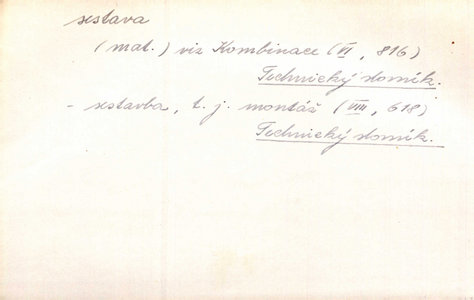 sestava
(mat.) viz Kombinace (VI, 816)
Technický slovník.
- sestavba, t. j. montáž (VIII, 618)
Technický slovník.